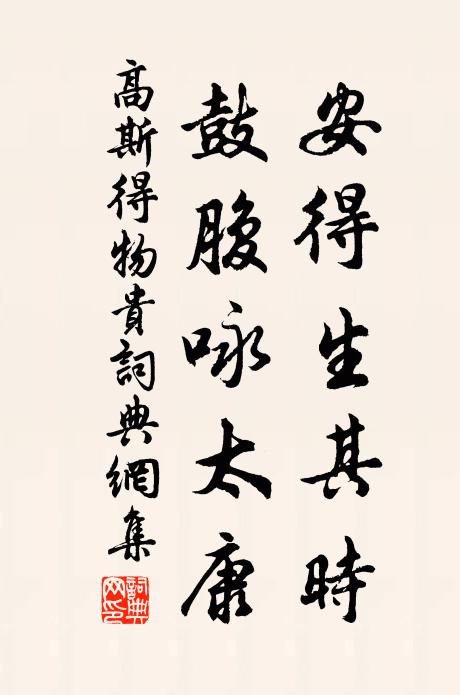 安得生其時
鼓腹咏太康
高斯得物貴詞典網集
詞典網印